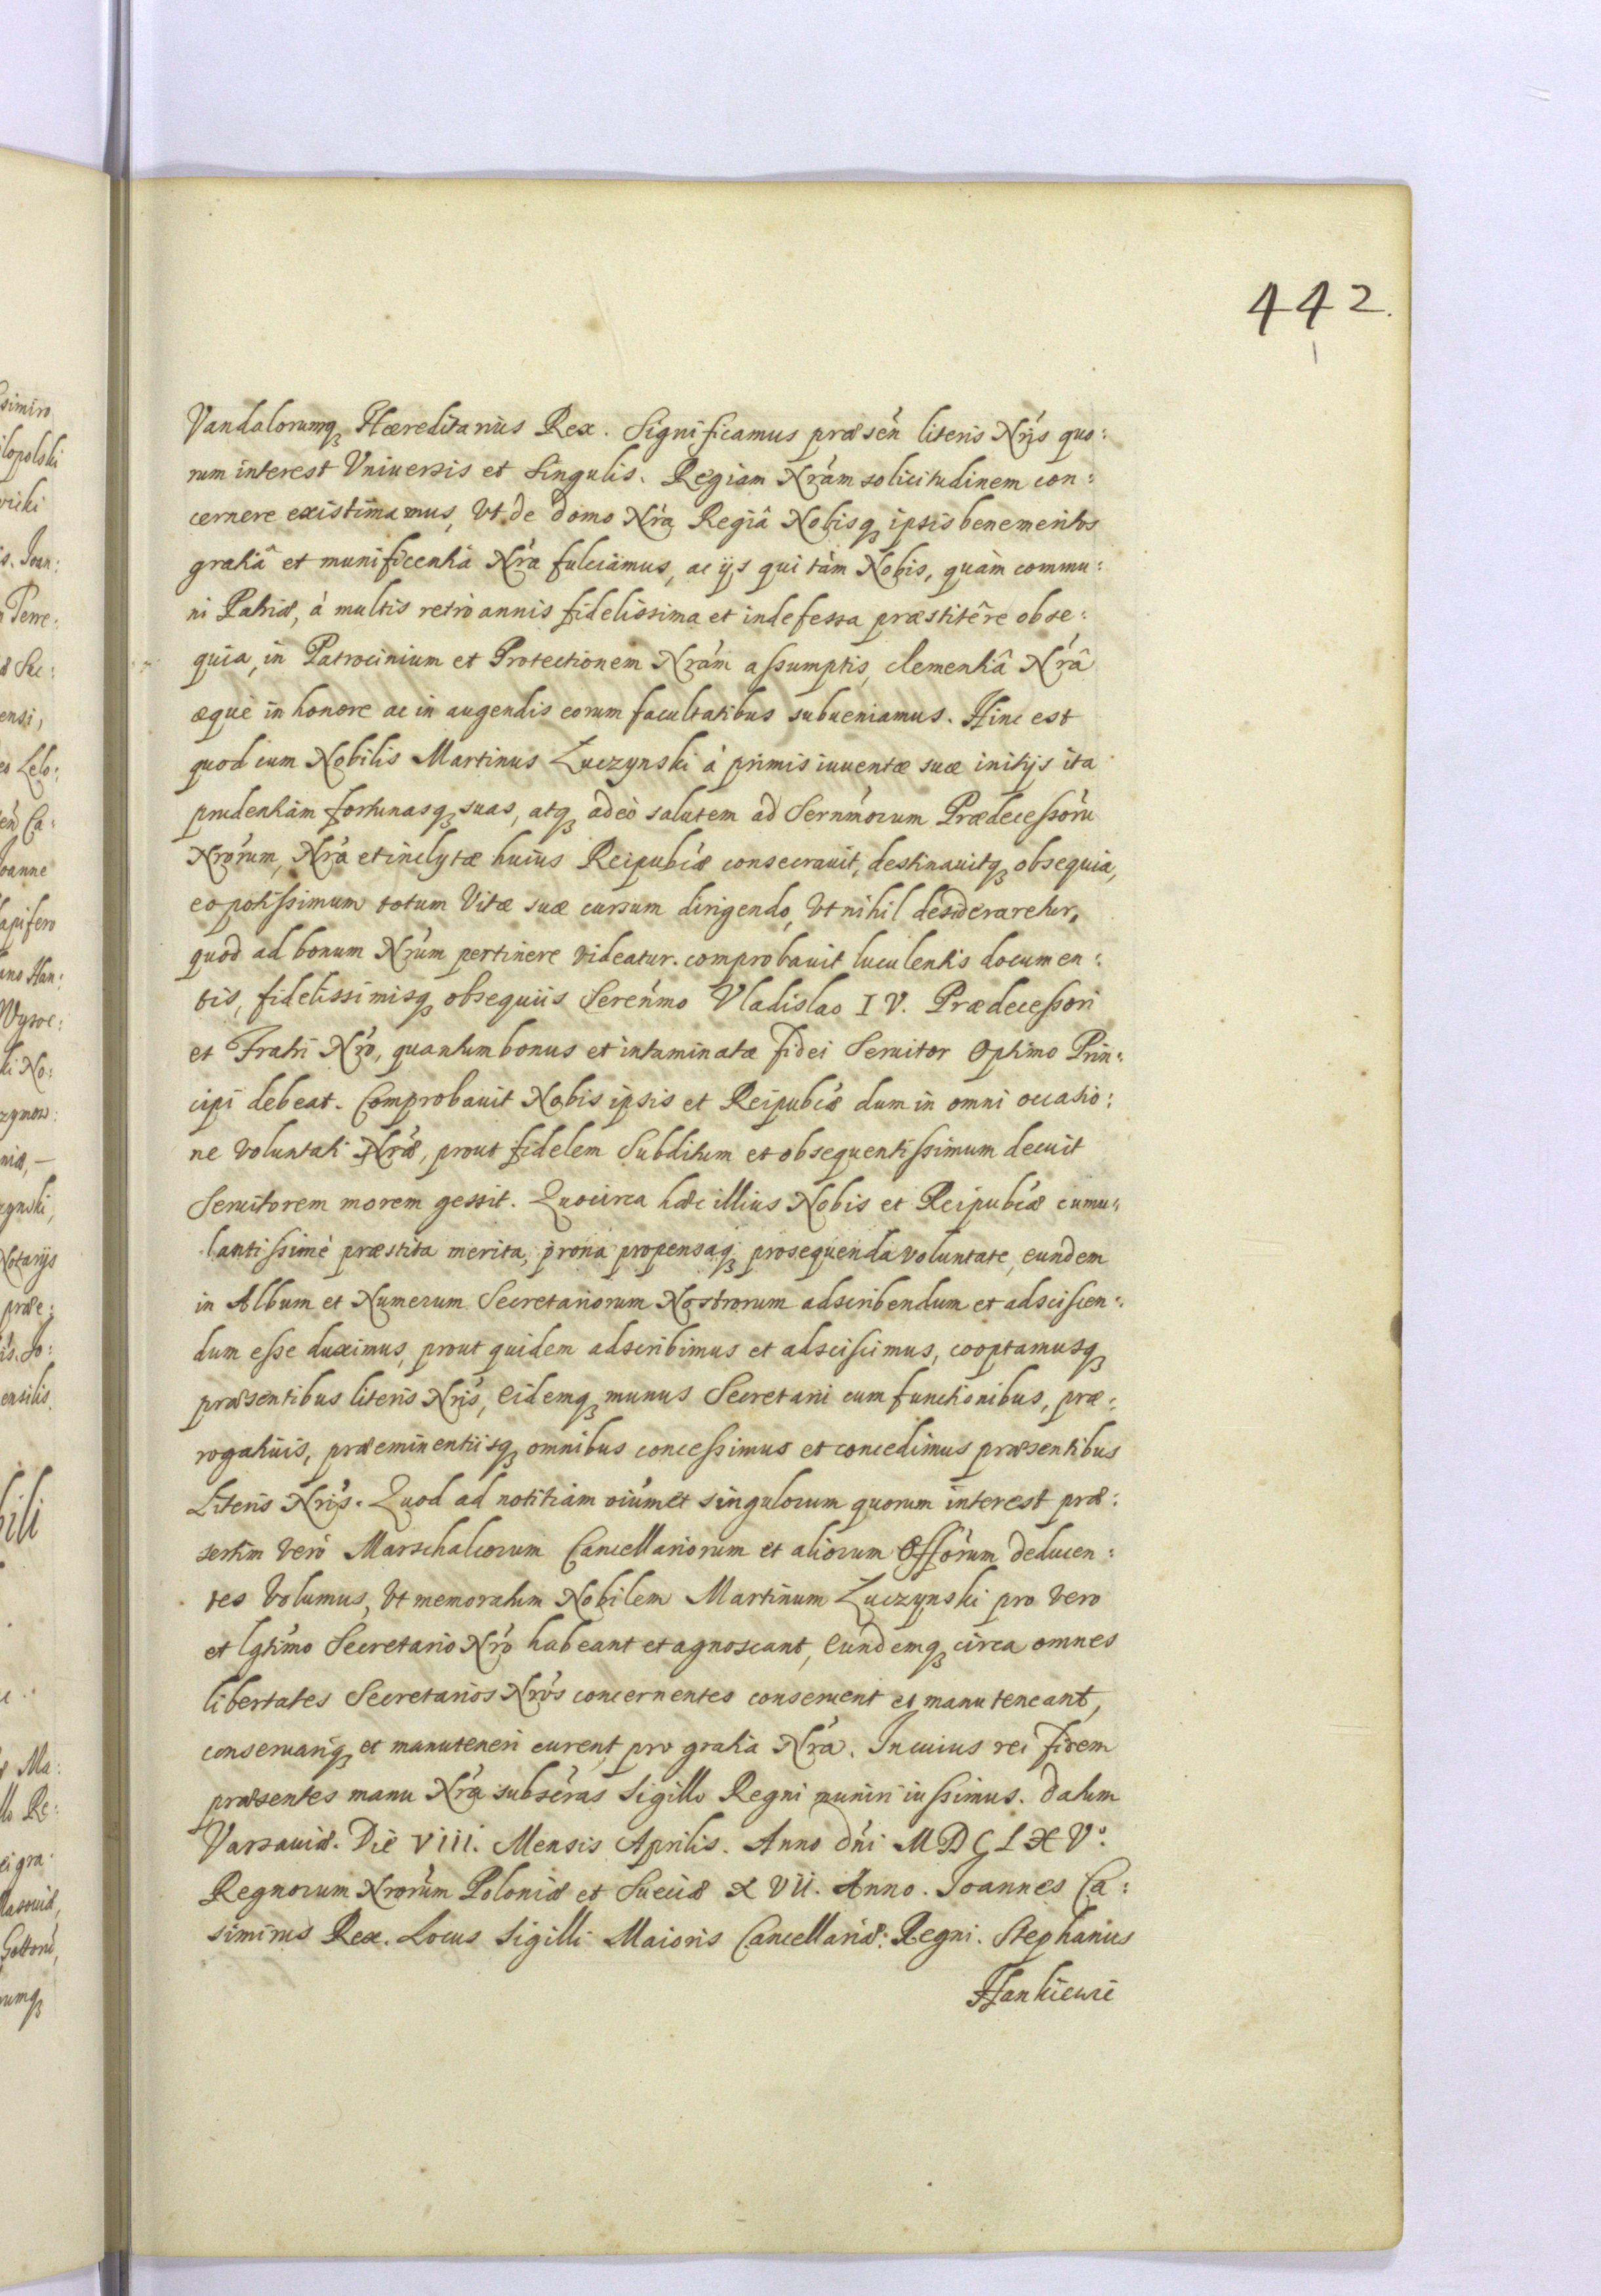 442.
Vandalorumq₃ Hæreditarius Rex. Significamus præsén literis Nrís quo:
rum interest Vniuersis et Singulis. Regiam Nrám solicitudinem con:
cernere existimamus, Vt de domo Nrá Regiâ Nobisq₃ ipsis benemeritos
gratiâ et munificentiâ Nrá fulciamus, ac ijs qui tàm Nobis, quàm commu:
ni Patriæ, à multis retrò annis fidelissima et indefessa præstitêre obse:
quia, in Patrocinium et Protectionem Nrám assumptis, clementiâ Nrâ
æquè in honore ac in augendis eorum facultatibus subueniamus. Hinc est
quod cum Nobilis Martinus Luczynski à primis iuuentæ suæ initijs ita
prudentiam fortunasq₃ suas, atq₃ adeò salutem ad Sernḿorum Prædecessorú
Nrórum, Nrá et inclytæ huius Reipubĺæ consecrauit, destinauitq₃ obsequia,
eo potissimum totum Vitæ suæ cursum dirigendo, Vt nihil desideraretur,
quod ad bonum Nrúm pertinere videatur. comprobauit luculentis documen:
tis, fidelissimisq₃ obsequiis Sereńmo Vladislao IV. Prædecessori
et Fratri Nró, quantum bonus et intaminatæ fidei Seruitor Optimo Prin:
cipi debeat. Comprobauit Nobis ipsis et Reipubĺæ dum in omni occasio:
ne Voluntati Nrǽ, prout fidelem Subditum et obsequentissimum decuit
Seruitorem morem gessit. Quocirca hæc illius Nobis et Reipubĺæ cumu:
lantissimè præstita merita, prona propensaq₃ prosequenda voluntate, eundem
in Album et Numerum Secretariorum Nostrorum adscribendum et adsciscen:
dum esse duximus, prout quidem adscribimus et adsciscimus, cooptamusq₃
præsentibus literis Nrís, Eidemq₃ munus Secretarii cum functionibus, præ:
rogatiuis, præeminentiisq₃ omnibus concessimus et concedimus præsentibus
Literis Nrís. Quod ad notitiam oiúm et singulorum quorum interest præ:
sertim Verò Marschalcorum Cancellariorum et aliorum Offórum deducen:
tes Volumus, Vt memoratum Nobilem Martinum Luczynski pro Vero
et lgtímo Secretario Nró habeant et agnoscant, Eundemq₃ circa omnes
libertates Secretarios Nrós concernentes conseruent et manuteneant,
conseruariq₃ et manuteneri curent, pro gratia Nrá. In cuius rei fidem
præsentes manu Nrá subscŕas Sigillo Regni muniri iussimus. Datum
Varsauiæ. Die VIII. Mensis Aprilis. Anno dńi MDCLXVº.
Regnorum Nrorúm Poloniæ et Sueciæ XVII. Anno. Joannes Ca:
simirus Rex. Locus Sigilli Maioris Cancellariæ: Regni. Stephanus
Hankiewic